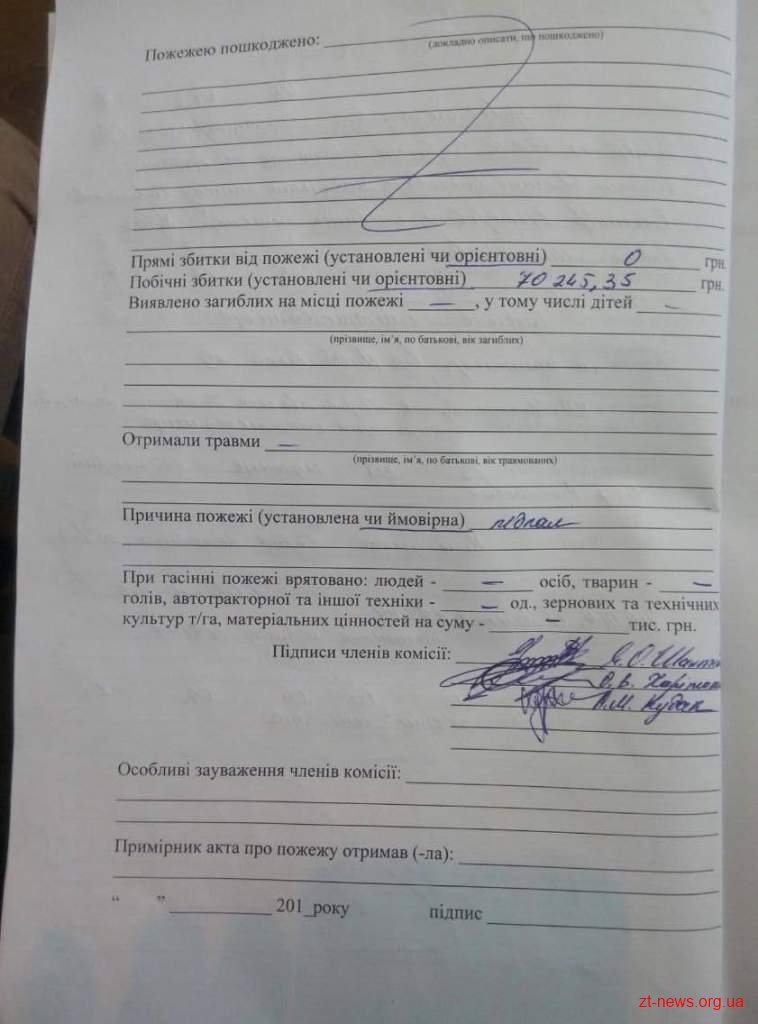 Пожежею пошкоджено:
(докладно описати, що пошкоджено)
Прямі збитки від пожежі (установлені чи орієнтовні) 0 грн.
Побічні збитки (установлені чи орієнтовні) 70 245,35 грн.
Виявлено загиблих на місці пожежі —, у тому числі дітей —
(прізвище, ім’я, по батькові, вік загиблих)
Отримали травми —
(прізвище, ім’я, по батькові, вік травмованих)
Причина пожежі (установлена чи ймовірна) підпал
При гасінні пожежі врятовано: людей - — осіб, тварин - —
голів, автотракторної та іншої техніки - — од., зернових та технічних
культур т/га, матеріальних цінностей на суму - — тис. грн.
Підписи членів комісії:
А.М. Кудак
Особливі зауваження членів комісії:
Примірник акта про пожежу отримав (-ла):
“ ” 201_року підпис
zt-news.org.ua